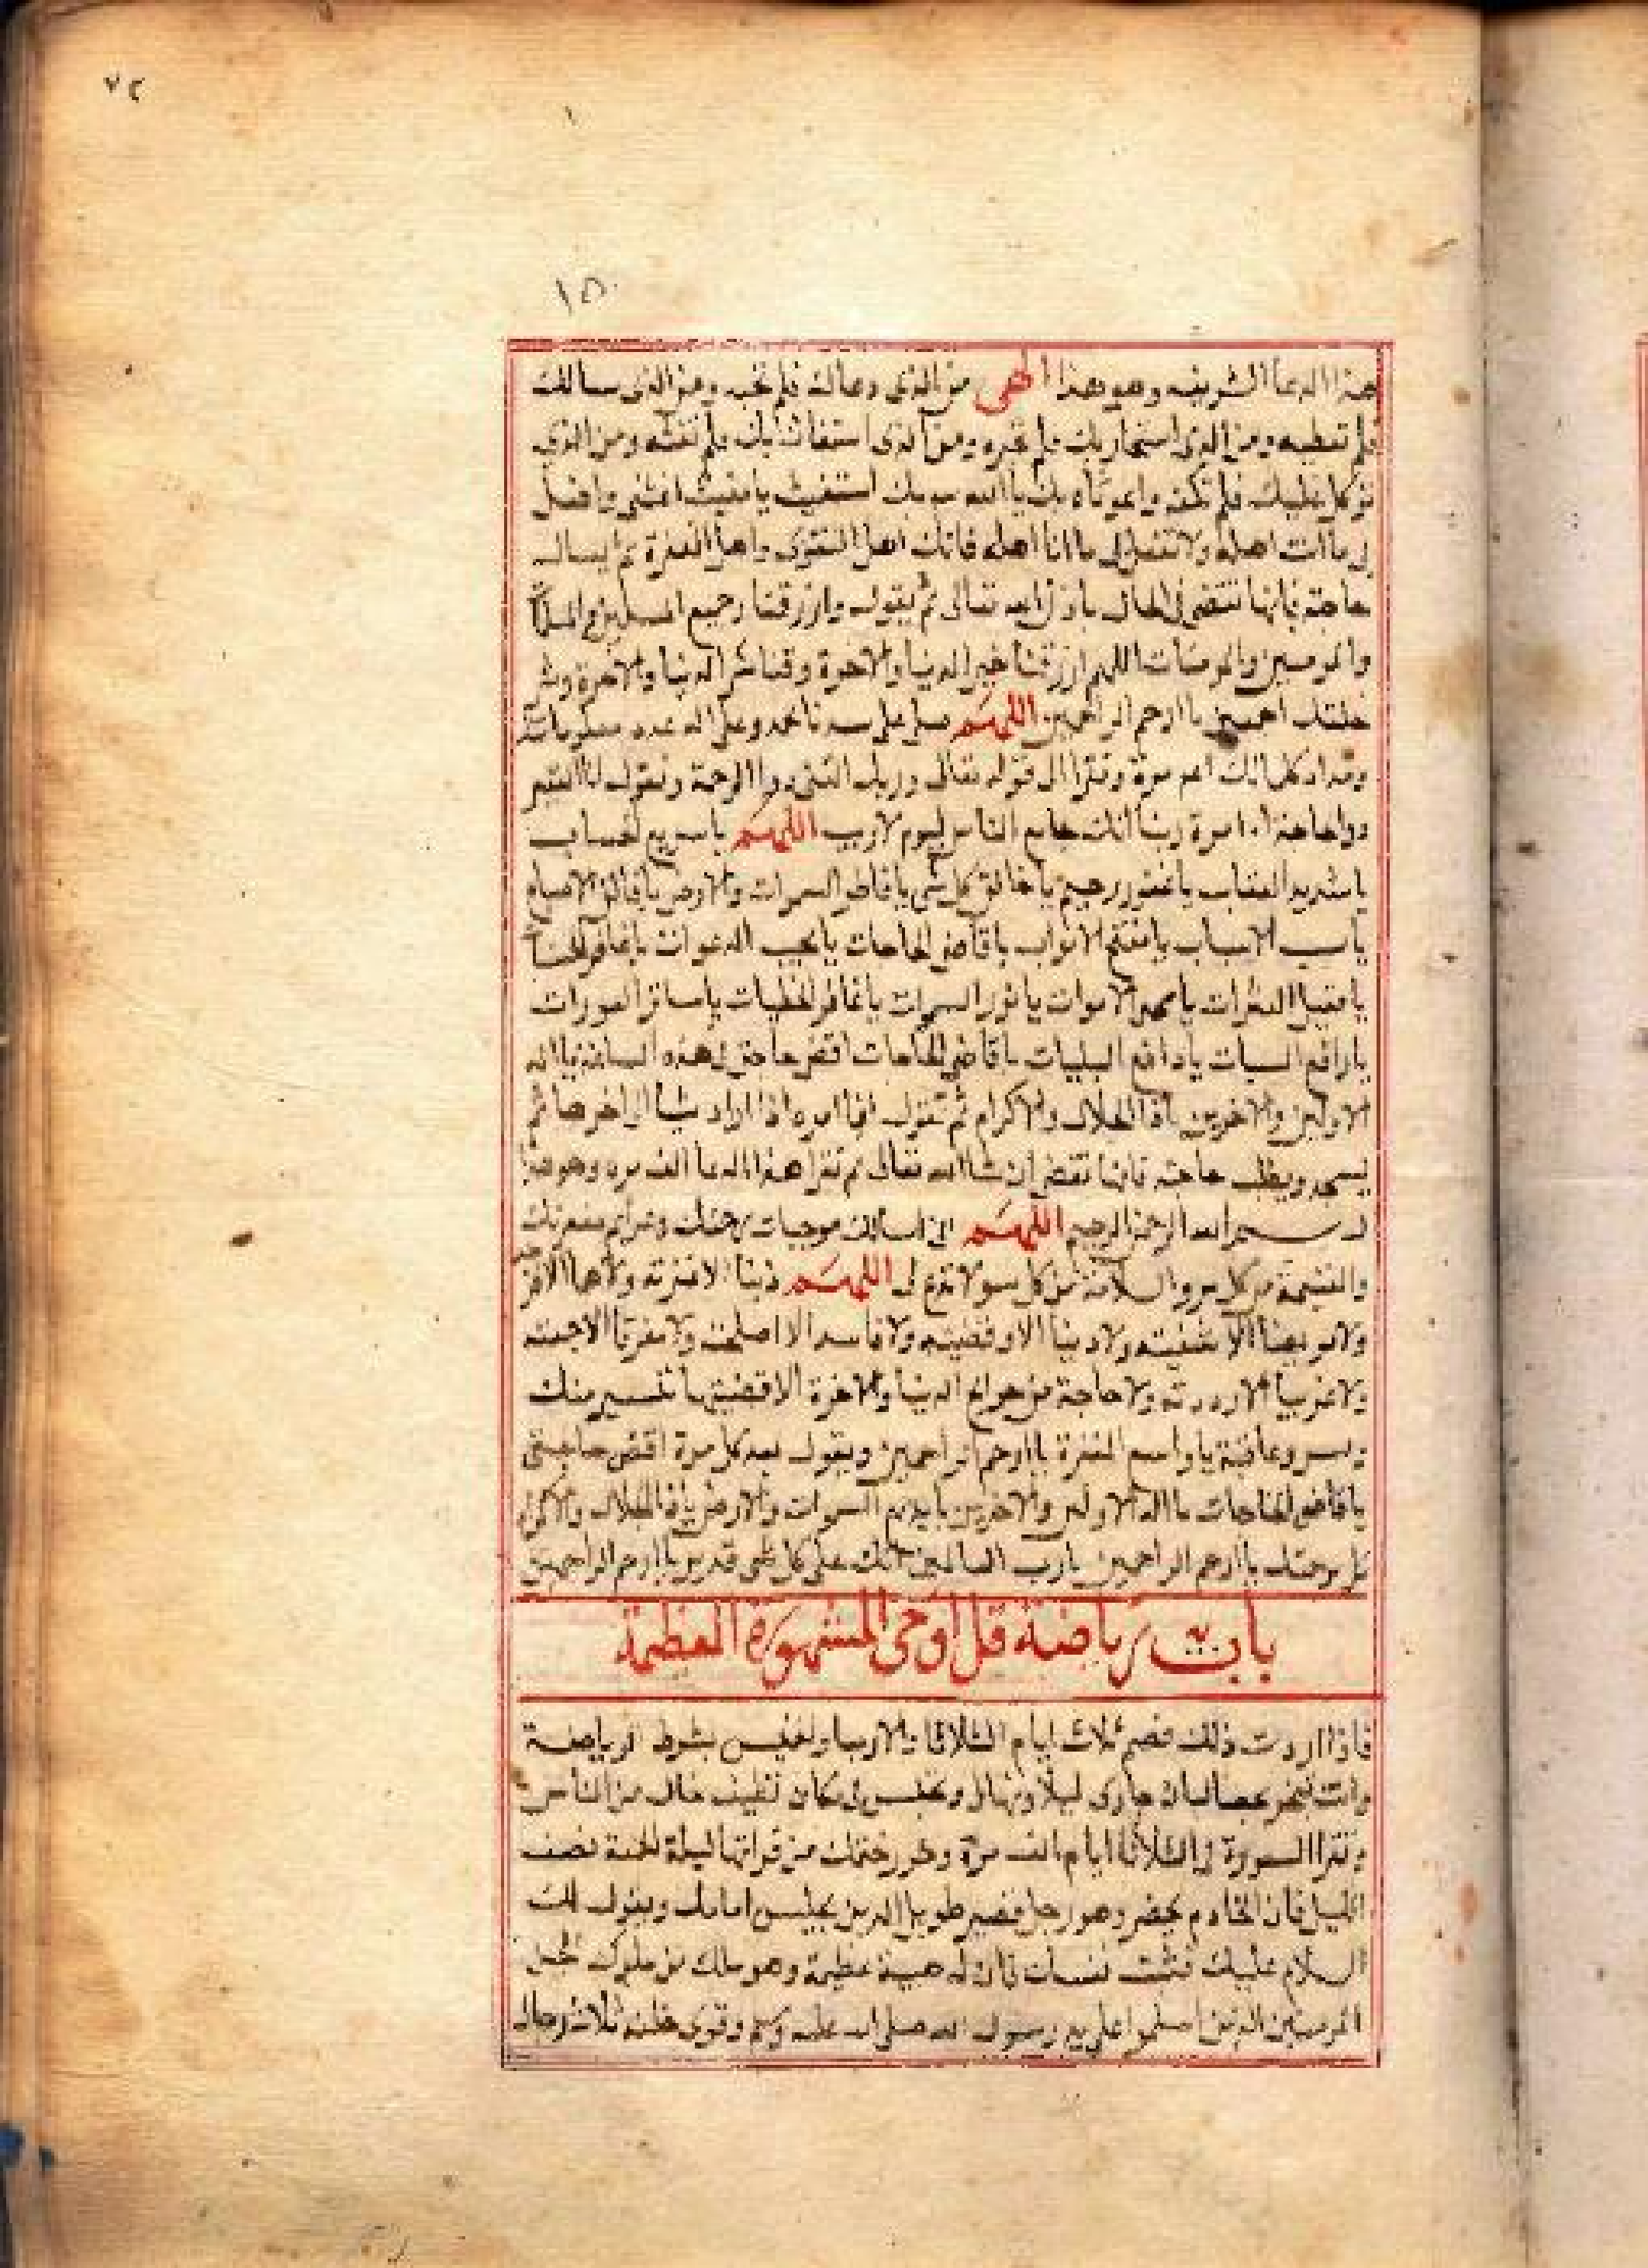 ٧٤
١٥٠
هذا الدعا الشريف وهو هذا الهى من الذى دعاك فلم تجبه ومن الذى سالك
فلم تعطيه ومن الذى استجار بك فلم تجره ومن الذى استغاث بك فلم تغثه ومن الذى
توكل عليك فلم تكفه واغوثاه بك يا الله بك استغيث يا مغيث اغثنى وافعل
بى ما انت اهله ولا تفعل بى ما انا اهله فانك اهل التقوى واهل المغفرة ثم يسال
حاجته فانها تقضى فى الحال باذن الله تعالى ثم يقول وارزقنا وجميع المسلمين والمسلمات
والمومنين والمومنات اللهم ارزقنا خير الدنيا والاخرة وقنا شر الدنيا والاخرة وشر
خلقك اجمعين يا ارحم الراحمين اللهم صل على سيدنا محمد وعلى اله عدد معلوماتك
ومداد كلماتك مرة وتقرا الى قوله تعالى وربك الغنى ذوا الرحمة وتقول
مرة ربنا انك جامع الناس ليوم لا ريب اللهم يا سريع الحساب
يا شديد العقاب يا غفور رحيم يا خالق كل شى يا فاطر السموات والارض يا فالق الاصباح
يا مسبب الاسباب يا مفتح الابواب يا قاضى الحاجات يا مجيب الدعوات يا
يا مقيل العثرات يا محى الاموات يا نور السموات يا غافر الخطيات يا ساتر العورات
يا رافع السيات يا دافع البليات يا قاضى الحاجات اقض حاجتى فى هذه الساعة يا اله
الاولين والاخرين ياذا الجلال والاكرام ثم تقول انما امره اذا اراد شيا الى اخرها ثم
يسجد ويطلب حاجته فانها تقضى ان شا الله تعالى ثم تقرا هذا الدعا الف مره وهو هذا
بسم الله الرحمن الرحيم اللهم انى اسالك موجبات رحمتك وعزايم مغفرتك
والغنيمة من كل بر والسلامة من كل سو لا تدع لى اللهم ذنبا الا غفرته ولا هما الا فرجته
ولا مريضا الا شفيته ولا دينا الا وفيته ولا فاسدا الا اصلحته ولا
ولا غريبا الا رددته ولا حاجة من حوايج الدنيا والاخرة الا قضيتها بتيسير منك
ويسر وعافية يا واسع المغفرة يا ارحم الراحمين ويقول بعد كل مرة اقض حاجتى
يا قاضى الحاجات يا اله الاولين والاخرين يا بديع السموات والارض ياذا الجلال والاكرام
برحمتك يا ارحم الراحمين يا رب العالمين انك على كل شى قدير يا ارحم الراحمين
باب رياضة قل اوحى المشهورة العظيمة
فاذا اردت ذلك فصم ثلاث ايام الثلاثا والاربعا والخميس بشرط الرياضة
وانت تبخر بحصالبان جاوى ليلا ونهارا وتجلس فى مكان نظيف خال من الناس
وتقرا السورة فى الثلاثة ايام الف مرة ختمك من قراتها ليلة الجمعة نصف
الليل فان الخادم يحضر وهو رجل قصير طويل اليدين يجلس امامك ويقول لك
السلام عليك فثبت نفسك فان له هيبة عظيمة وهو ملك من ملوك الجن
المومنين الذين اسلموا على يد رسول الله صلى الله عليه وسلم وترى خلفه ثلاث رجال